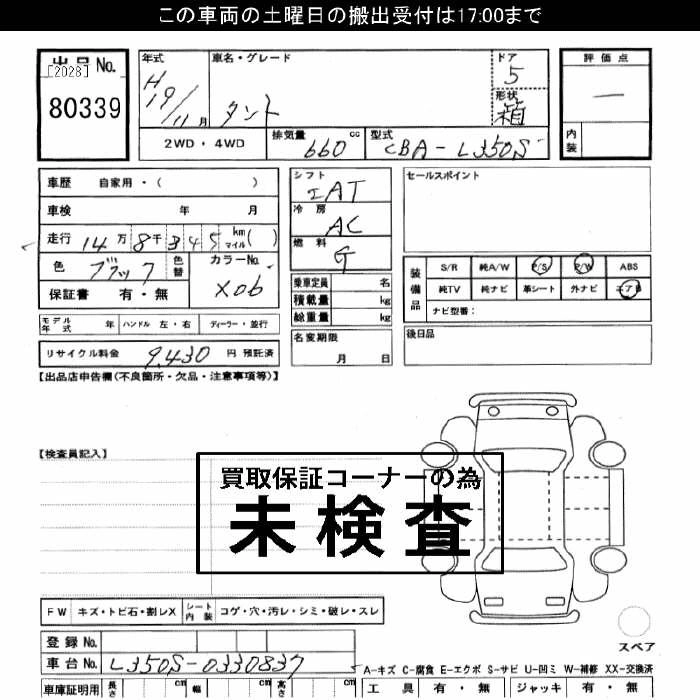 この車両の土曜日の搬出受付は17:00まで
出品No.
[2028]
80339
年式
H19/11月
車名・グレード
タント
ドア
5
形状
箱
評価点
一
内装
2WD・4WD
排気量
660 cc
型式
CBA-L350S
車歴 自家用・( )
車検 年 月
走行 14万8千345km マイル( )
色 ブラック 色替
カラーNo.
X06
保証書 有・無
シフト
IAT
冷房
AC
燃料
G
乗車定員 名
積載量 kg
総重量 kg
セールスポイント
装備品
S/R 純A/W P/S P/W ABS
純TV 純ナビ 革シート 外ナビ エアB
ナビ型番:
モデル年式 年 ハンドル 左・右 ディーラー・並行
名変期限
月 日
後日品
リサイクル料金 9,430 円 預託済
【出品店申告欄(不良箇所・欠品・注意事項等)】
【検査員記入】
買取保証コーナーの為
未検査
FW キズ・トビ石・割レX シート内装 コゲ・穴・汚レ・シミ・破レ・スレ
スペア
登録No.
車台No. L350S-0330837
A-キズ C-腐食 E-エクボ S-サビ U-凹ミ W-補修 XX-交換済
車庫証明用 長さ cm 幅 cm 高さ cm
工具 有・無 ジャッキ 有・無